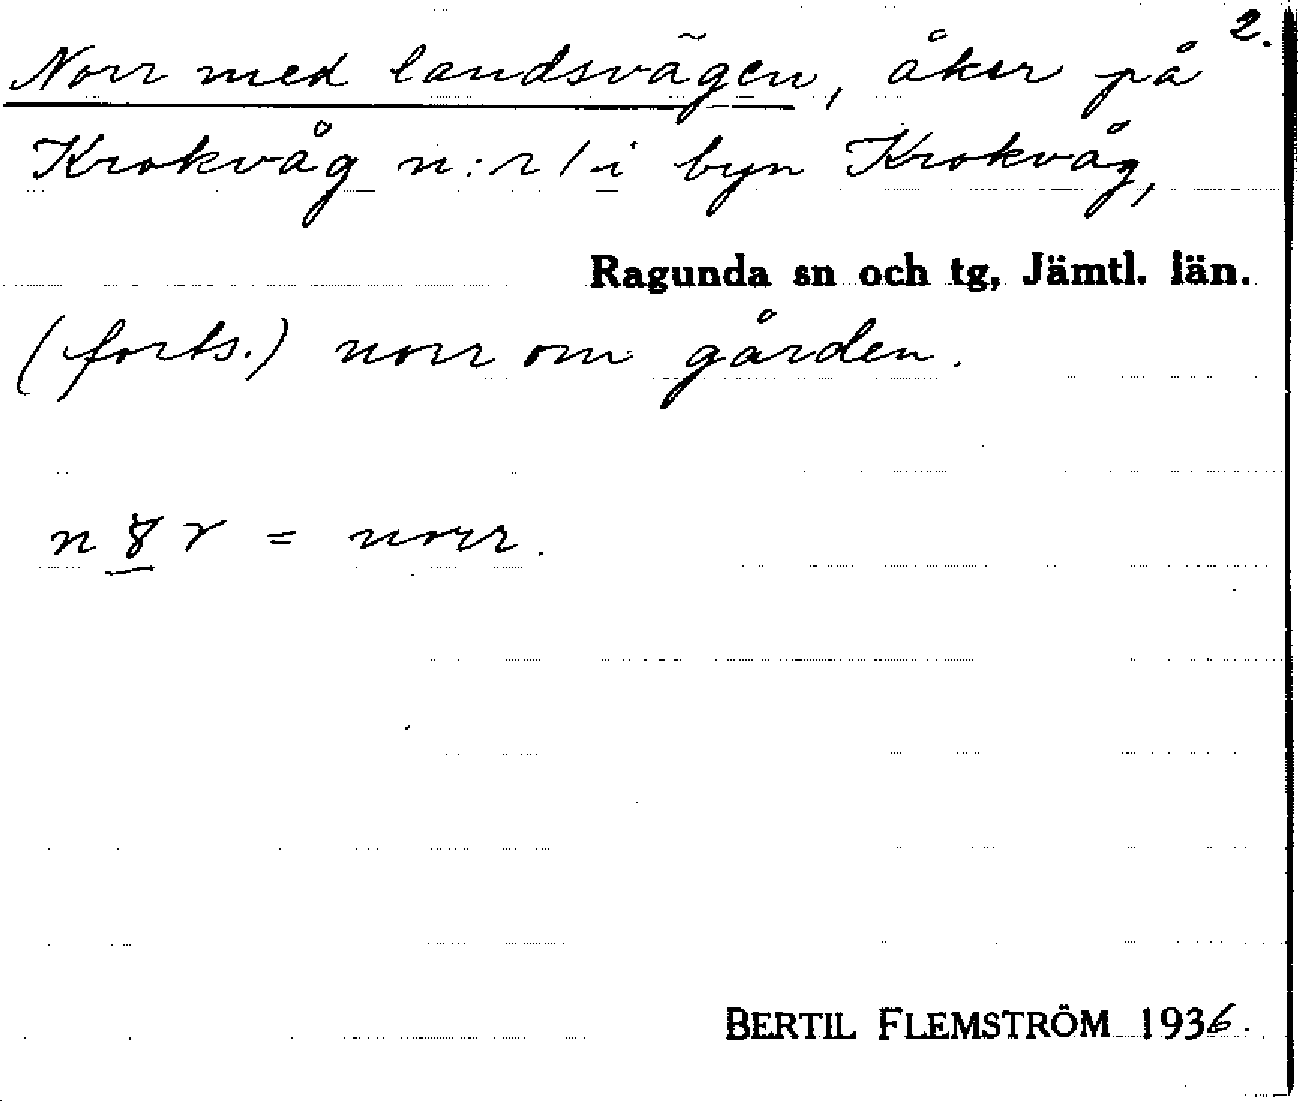 2.
Norr med landsvägen, åker på
Krokvåg n:r 1 i byn Krokvåg,
Ragunda sn och tg, Jämtl. län.
(forts.) norr om gården.
n r = norr.
BERTIL FLEMSTRÖM 1936.